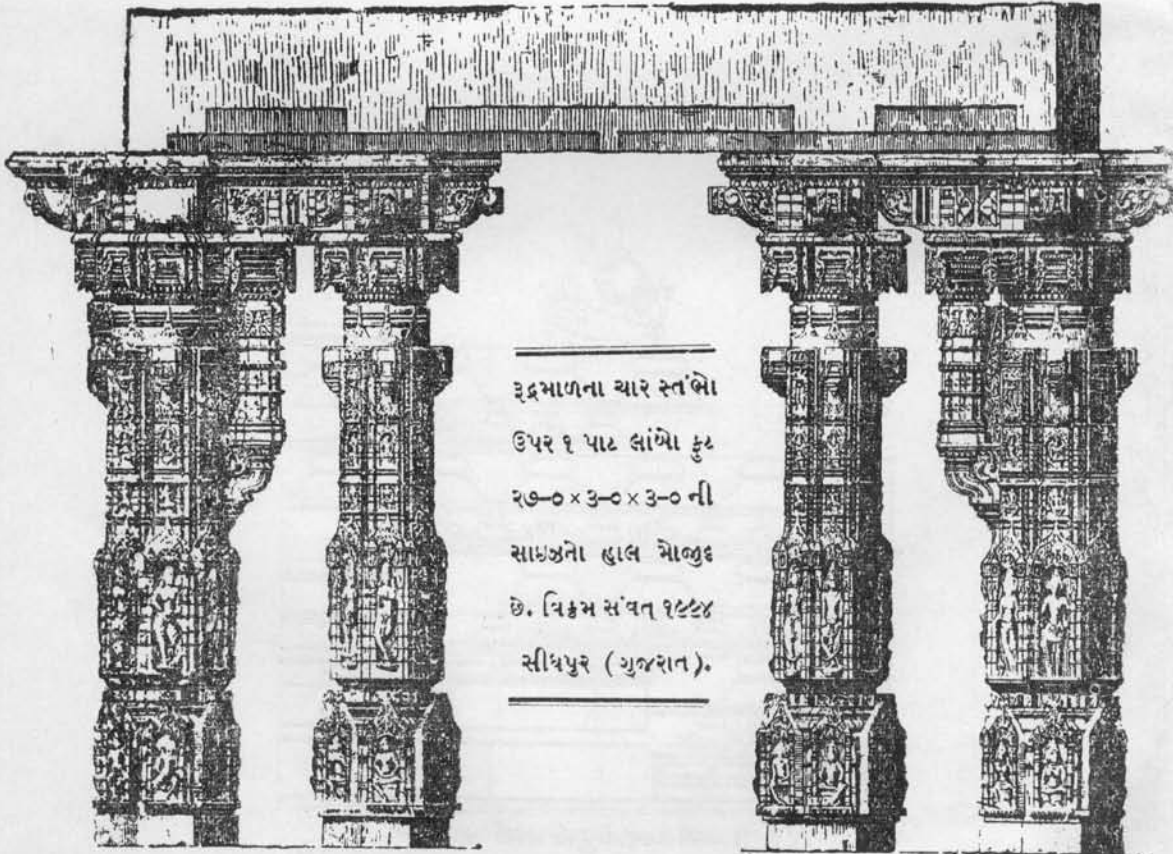 રૂદ્રમાળના ચાર સ્તંભો
ઉપર ૧ પાટ લાંબો ફુટ
૨૭-૦ × ૩-૦ × ૩-૦ ની
સાઇઝનો હાલ મોજુદ
છે. વિક્રમ સંવત્ ૧૯૯૪
સીધપુર (ગુજરાત).